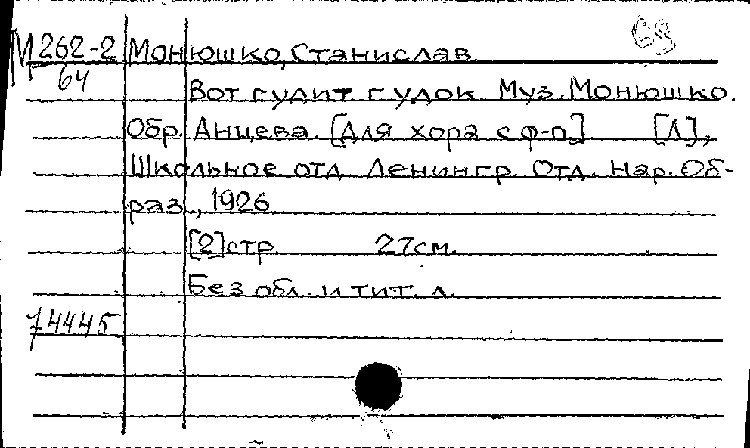 М 262-2 Монюшко, Станислав
64
Вот гудит гудок. Муз. Монюшко.
Обр. Анцева. [Для хора с ф-п.] [Л],
Школьное отд. Ленингр. Отд. Нар. Об-
раз., 1926.
[2] стр. 27см.
Без обл. и тит. л.
74445